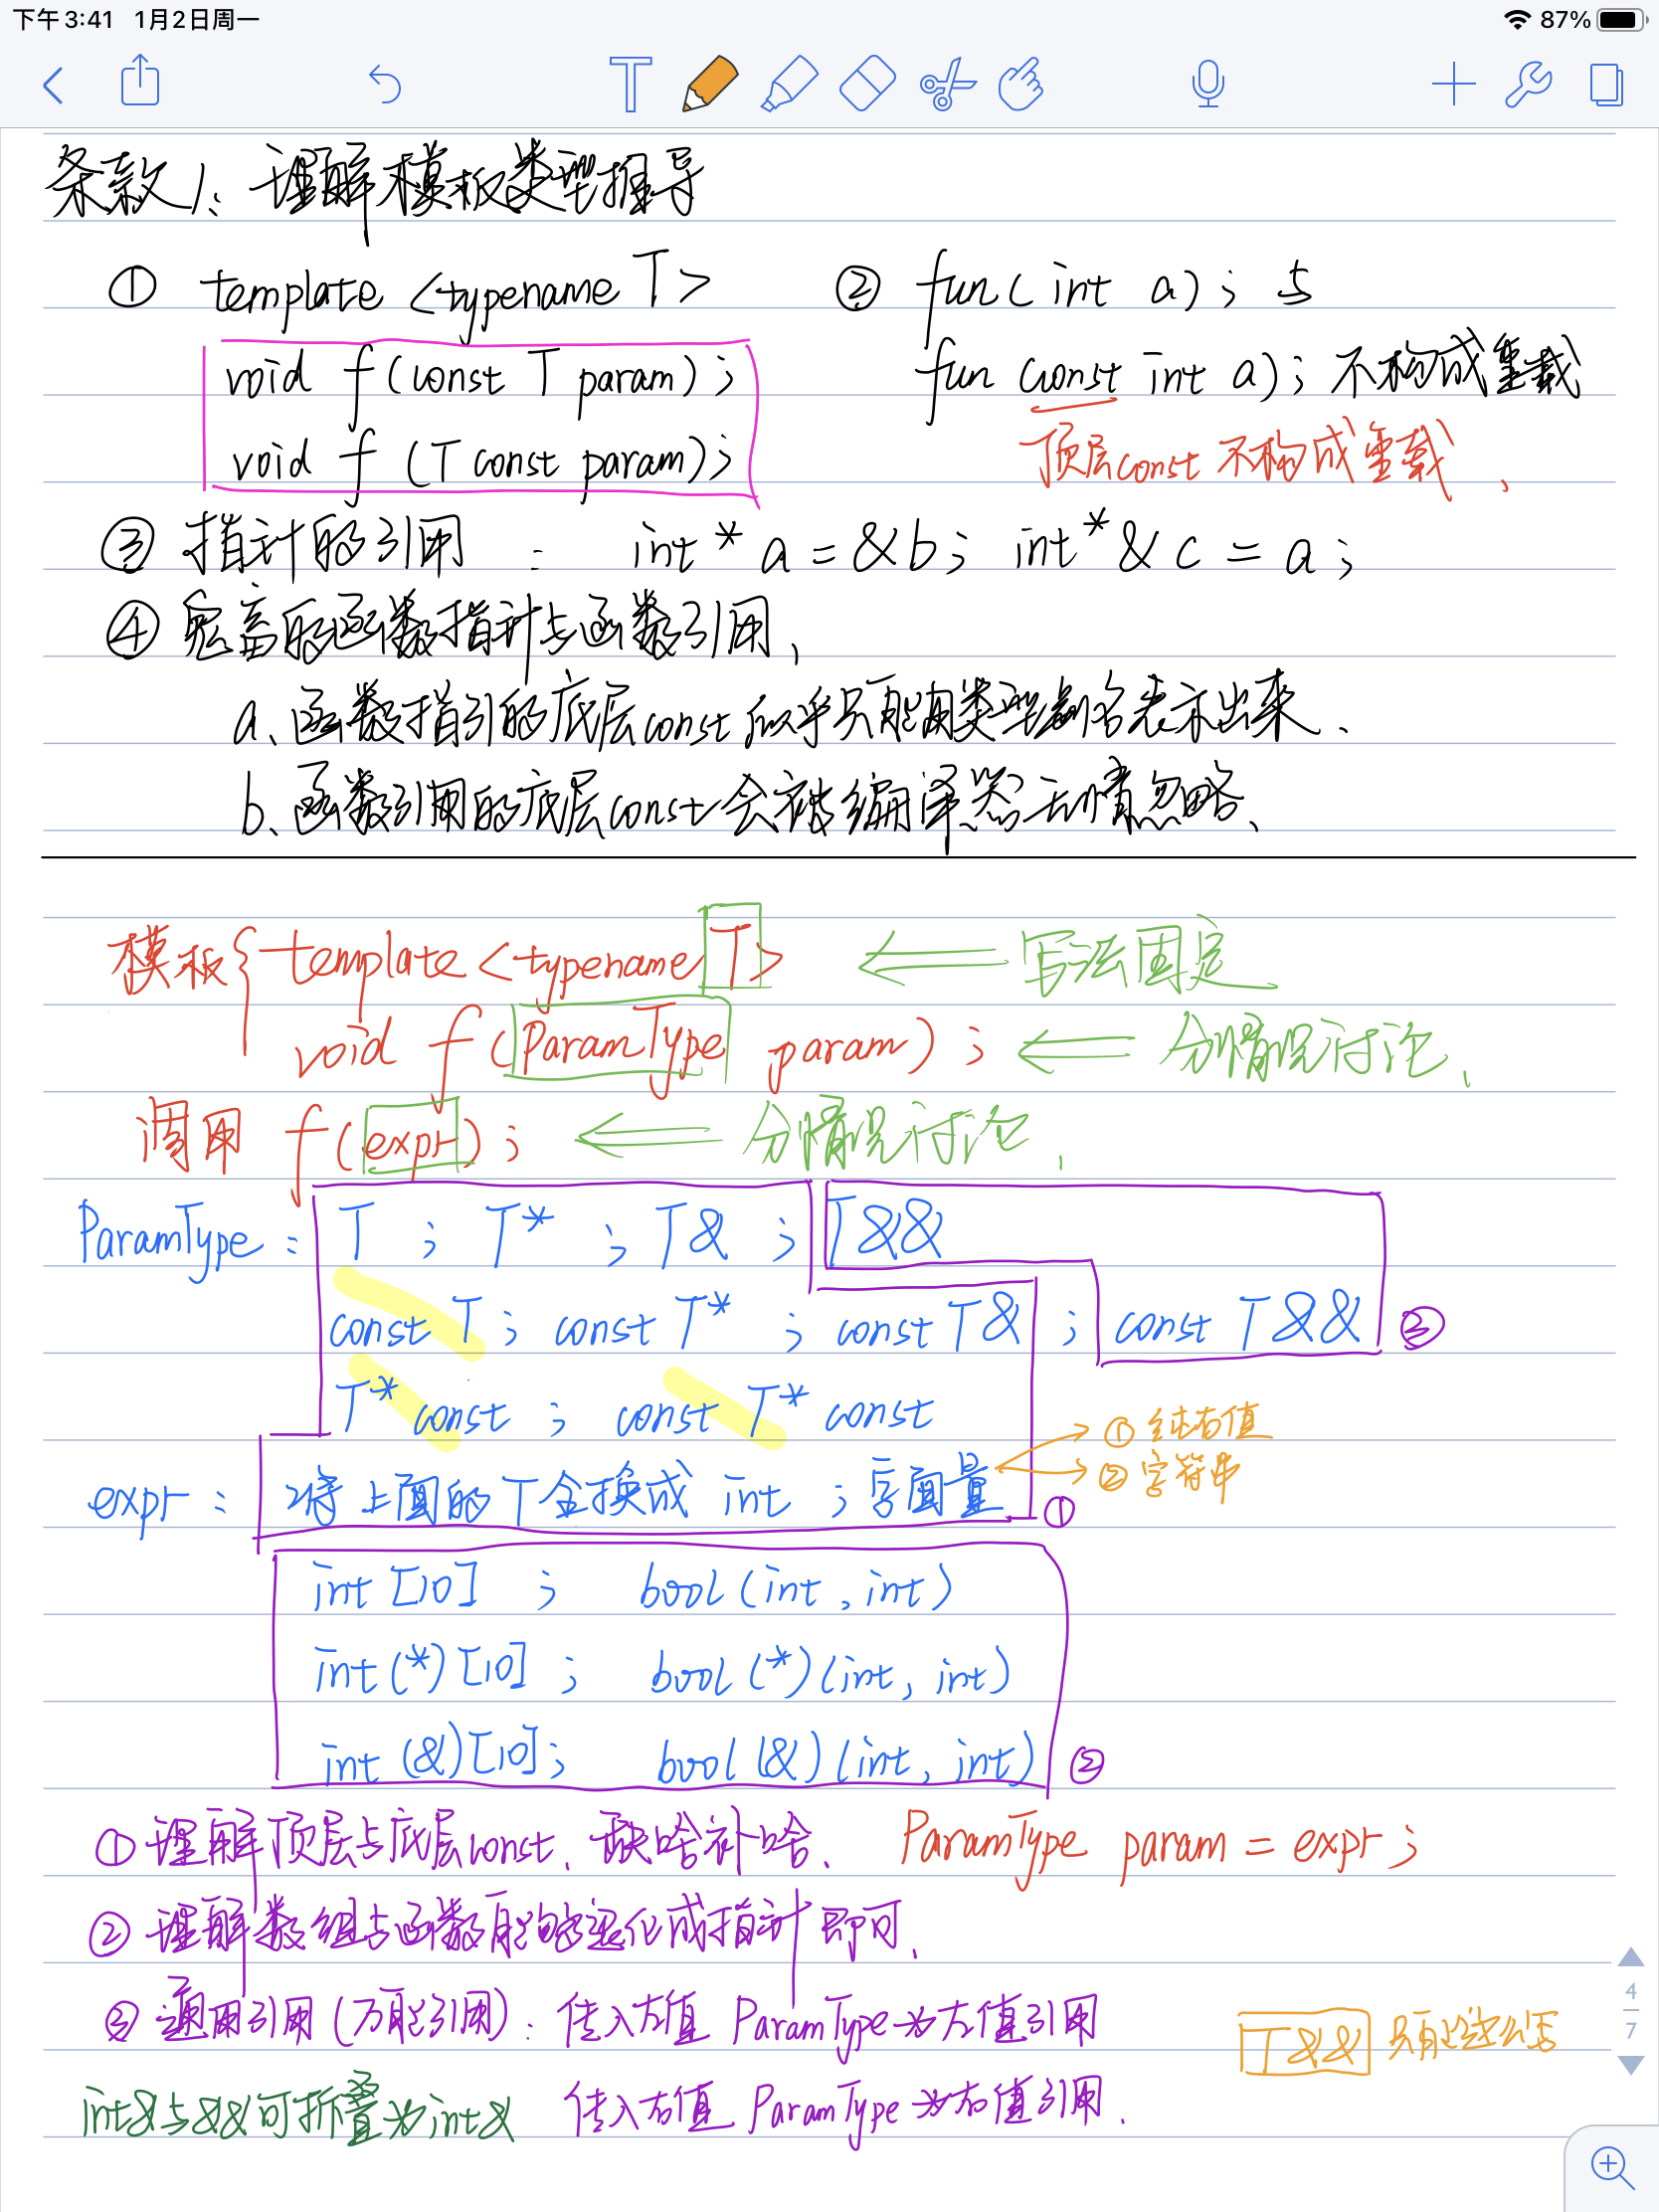 下午3:41 1月2日周一 87%
条款1: 理解模板类型推导
① template <typename T>
void f(const T param);
void f (T const param);
② fun(int a); 与
fun(const int a); 不构成重载
顶层const 不构成重载、
③ 指针的引用 : int* a = &b; int*& c = a;
④ 掩盖的函数指针与函数引用、
a、函数指引的底层const似乎只能用类型别名表示出来、
b、函数引用的底层const会被编译器无情忽略、
模板{ template <typename T> ⇐ 写法固定
void f(ParamType param); ⇐ 分情况讨论、
调用 f(expr); ⇐ 分情况讨论、
ParamType: T ; T* ; T& ; T&&
const T; const T* ; const T& ; const T&& ③
T* const ; const T* const
expr: 将上面的T全换成 int ; 字面量 ①
① 纯右值
② 字符串
int [10] ; bool(int, int)
int(*)[10] ; bool(*)(int, int)
int (&)[10]; bool(&)(int, int) ②
① 理解顶层与底层const、缺啥补啥、 ParamType param = expr;
② 理解数组与函数能够退化成指针即可、
③ 通用引用(万能引用): 传入左值 ParamType为左值引用
T&& 只能这么写
int&与&&可折叠为int& 传入右值 ParamType为右值引用.
4
7